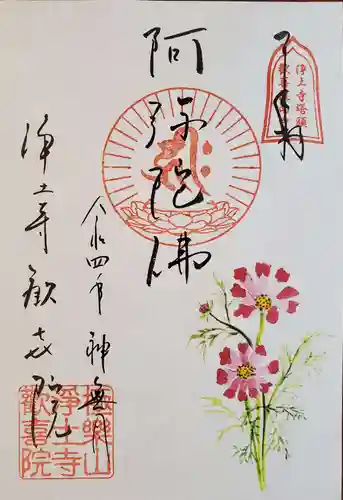 浄土寺塔頭
歓喜院
阿弥陀佛
令和四年 神無月
浄土寺歓喜院
極樂山
淨土寺
歡喜院